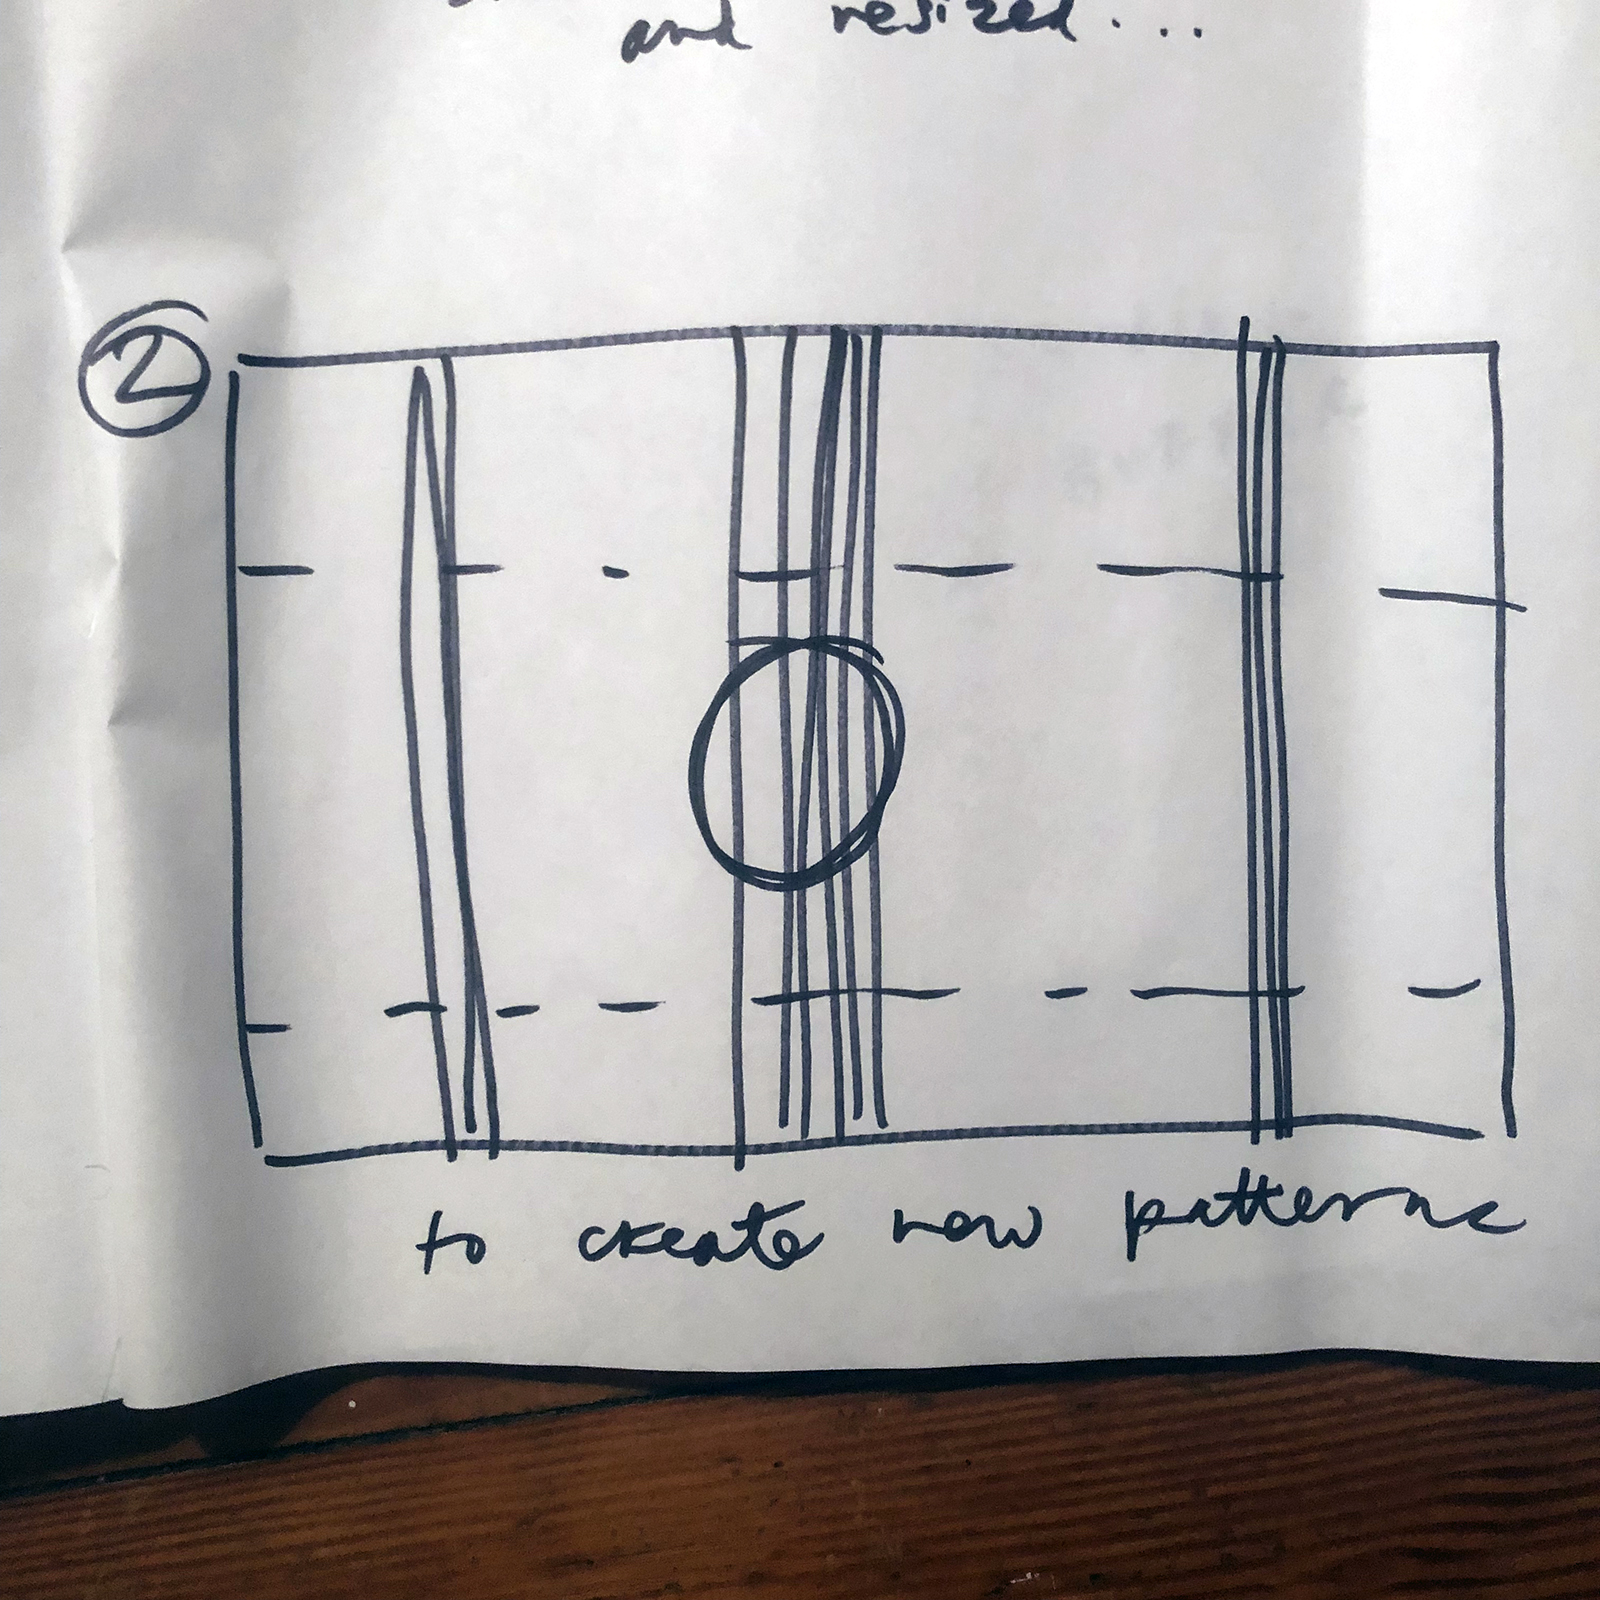 and resized...
2
to create new patterns